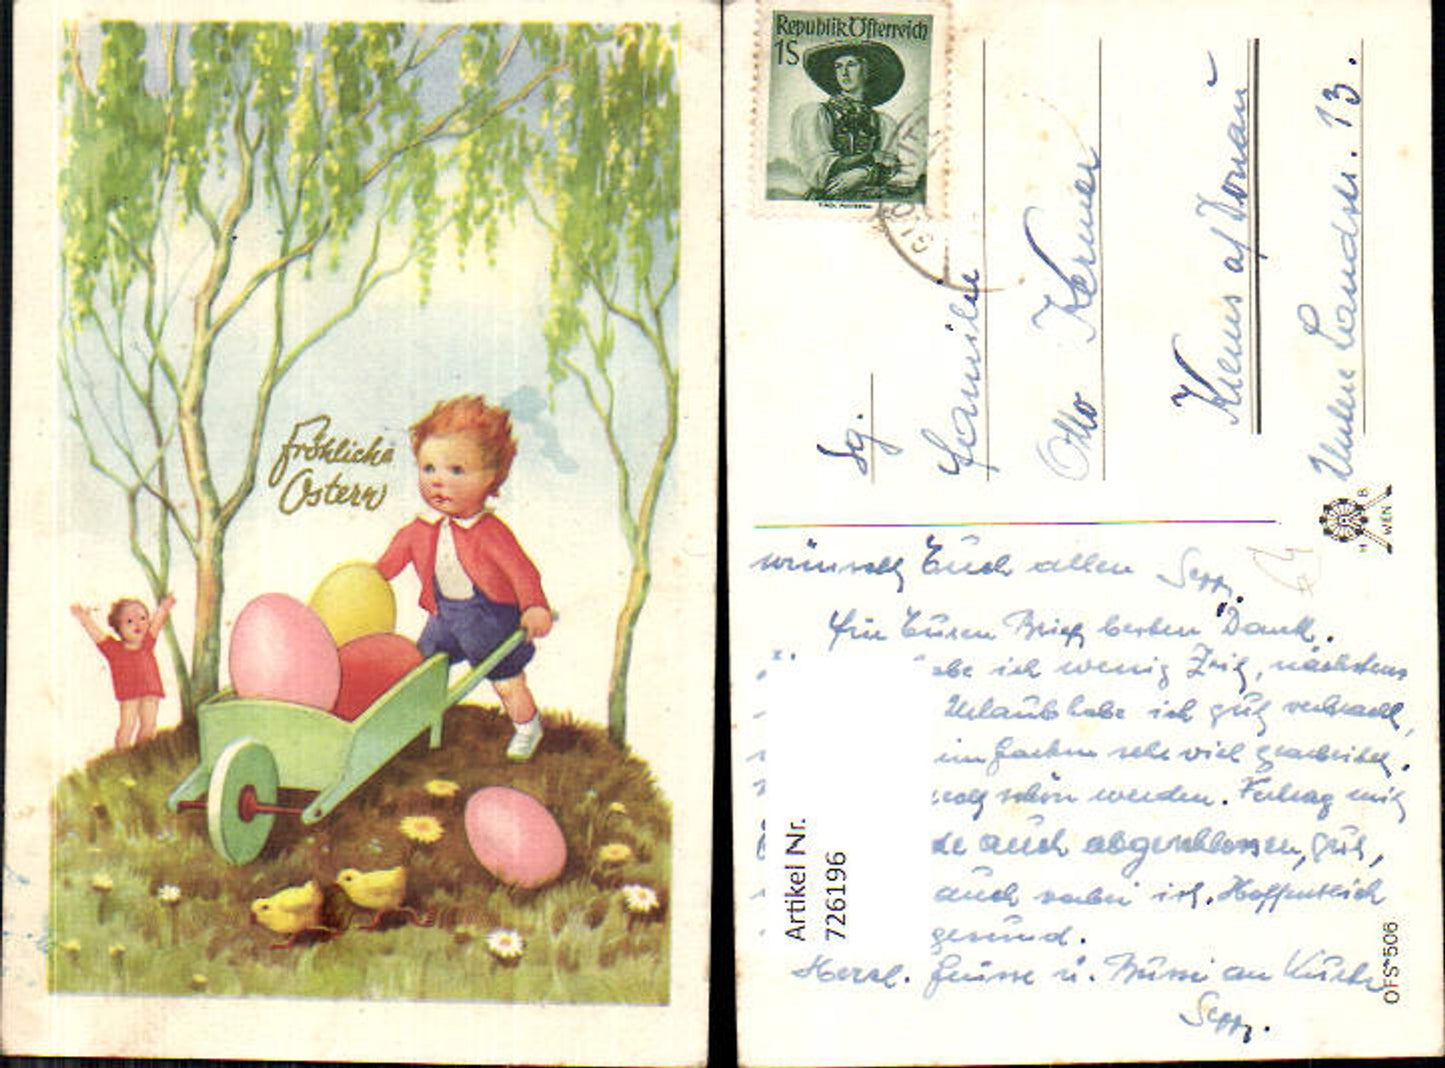 Fröhliche
Ostern
Republik Österreich
1S
Sg.
Familie
Otto Kerner
Krems a/ Donau
Untere Landstr. 13.
H B WIEN
wünscht Euch allen Sepp.
Für Euren Brief besten Dank.
ich wenig Zeit, nächstens
Urlaub habe ich gut verbracht,
im Garten sehr viel gearbeitet.
schön werden. Vertrag mit
auch abgeschlossen, gut,
auch vorbei ist. Hoffentlich
gesund.
Herzl. Grüsse u. Bussi an Kurtz
Sepp.
Artikel Nr.
726196
OFS*506